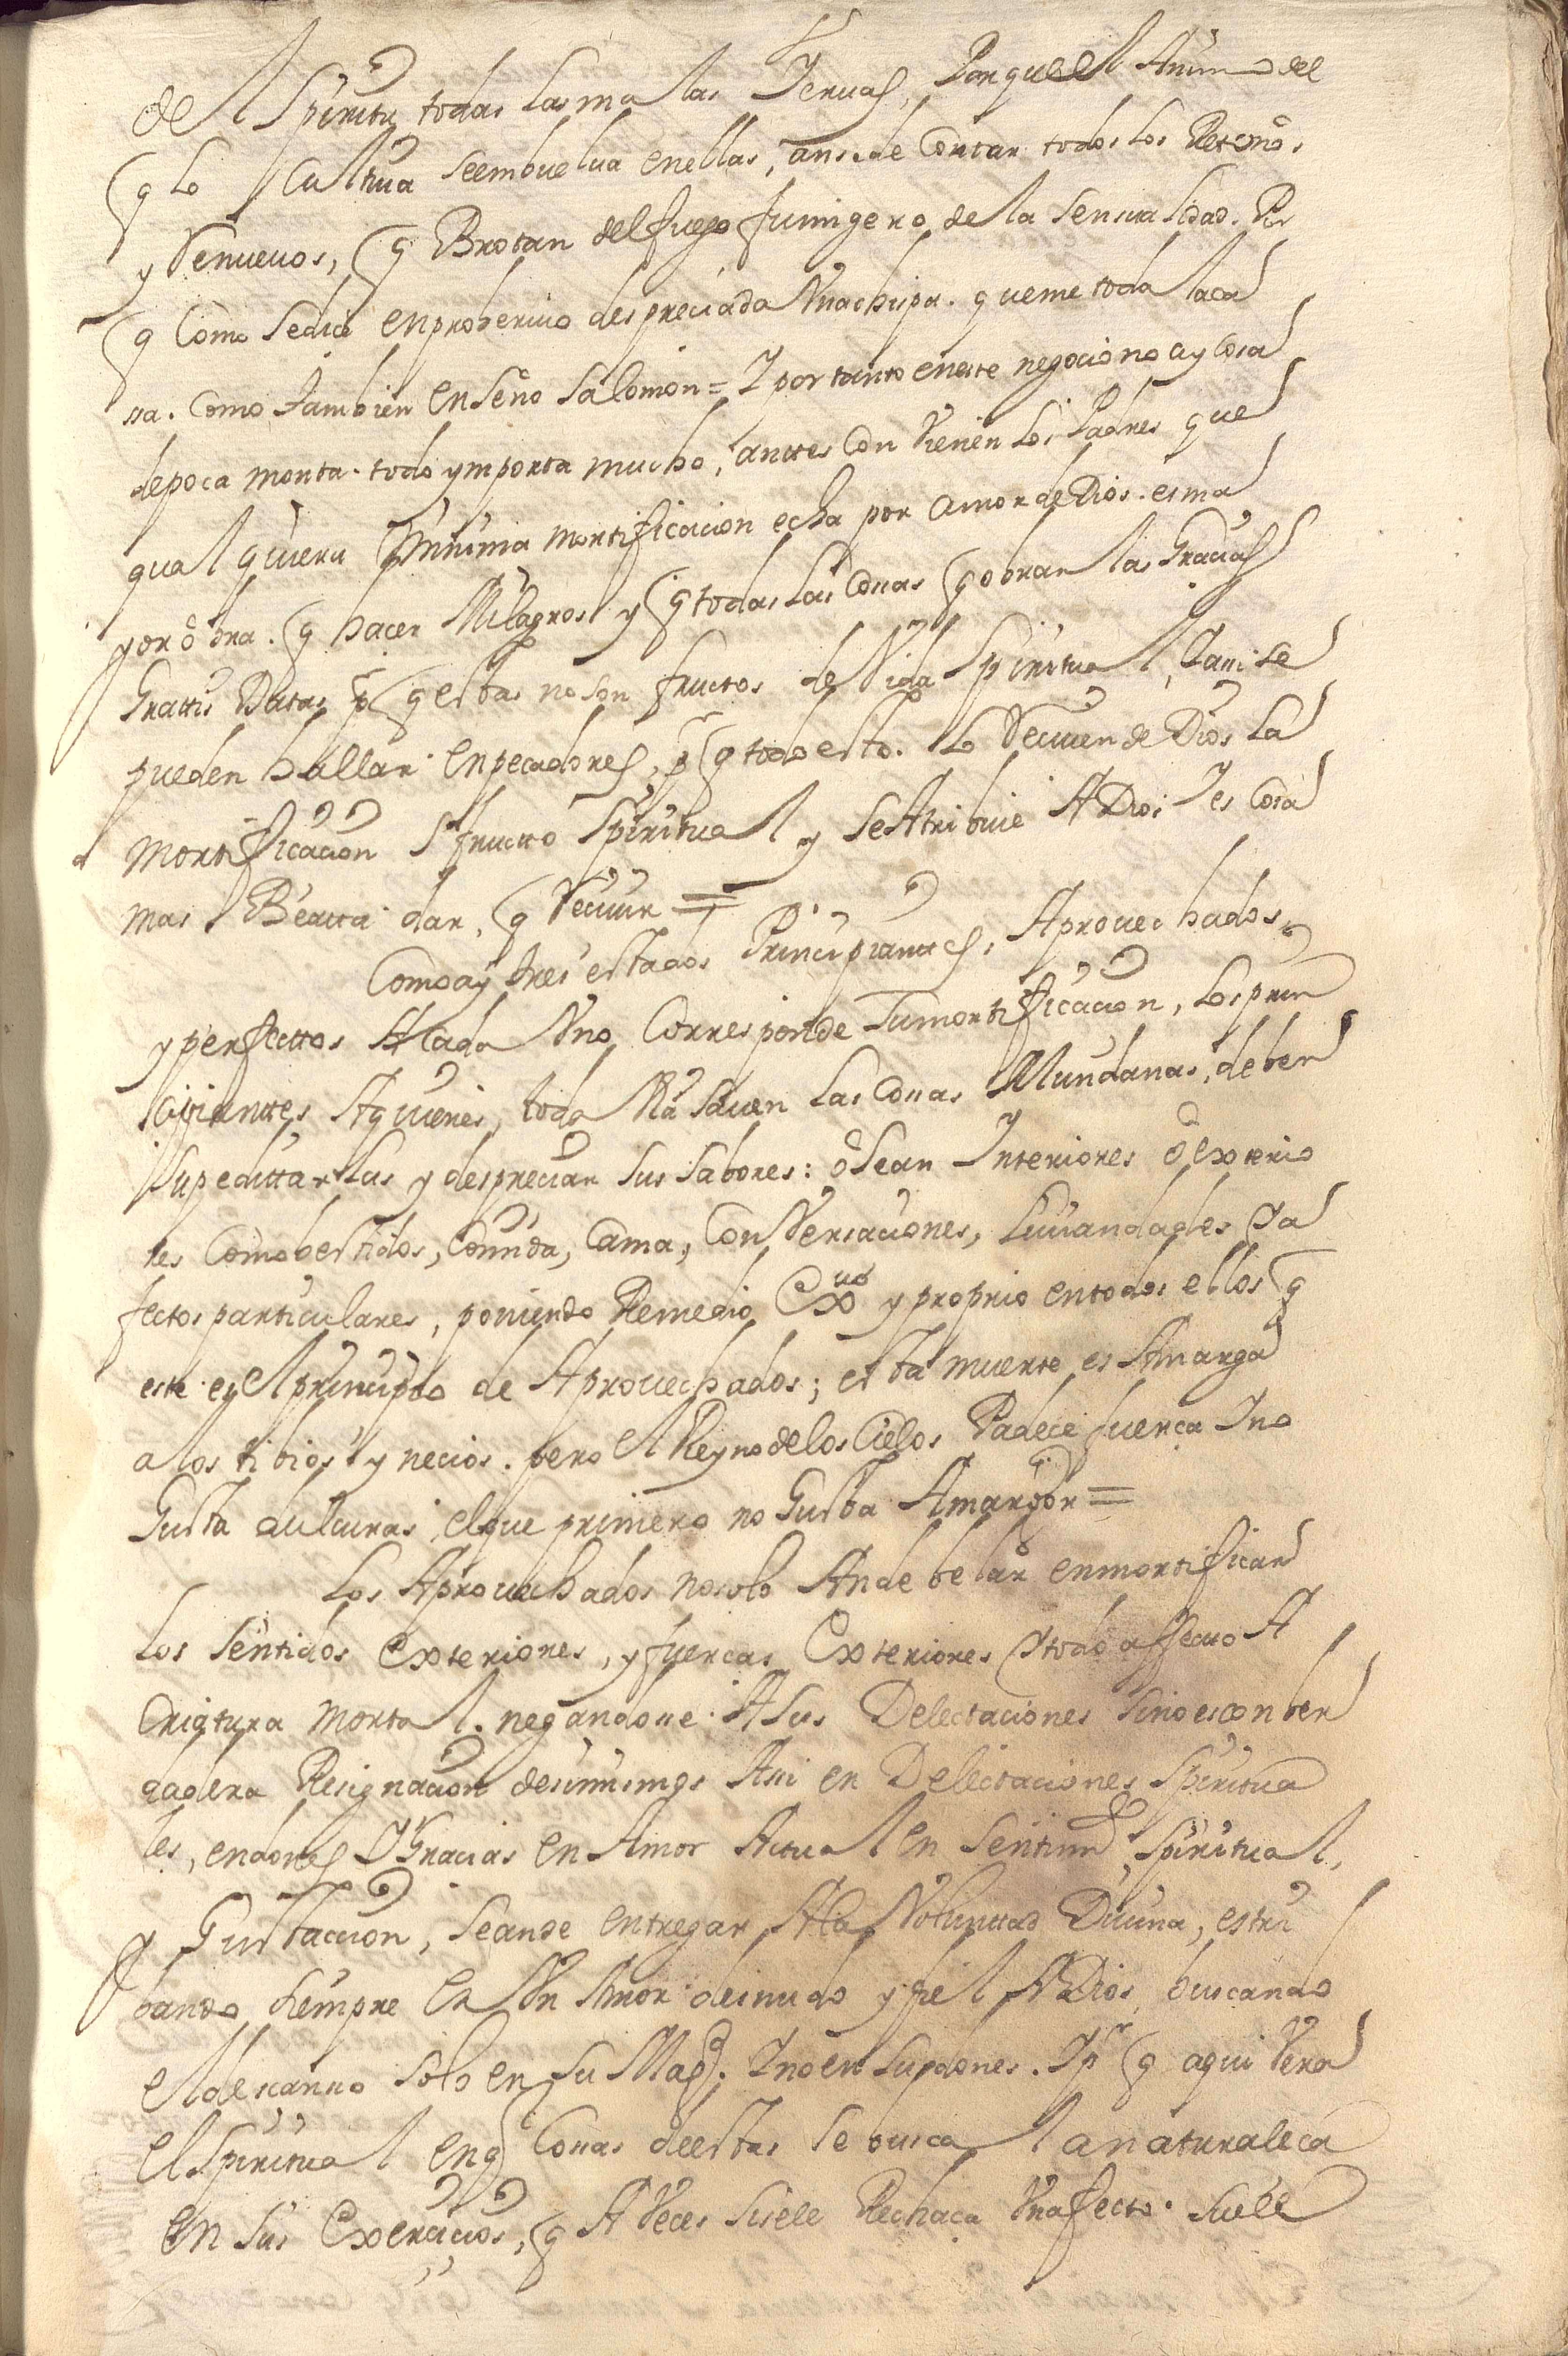 del Spiritu todas las malas Yeruas, Porque el Animo del
q lo Cultiua se embuelua en ellas, ansi de Cortar todos los Retoños
y Renueuos, q Brotan del fuego fumigero de la Sensualidad. Por
q Como se dice en proberuio despreciada Vna chispa. queme toda la ca
ssa. Como tambien enseño Salomon = Y por tanto en este negocio no ay Cosa
de poca monta. todo ymporta mucho, antes Convienen los Padres que
qualquiera Minima mortificacion echa por amor de Dios. es ma
yor obra. q hacer Milagros y q todas las Cossas q obran las Gracias
Gratis Datas pr q estas no son fructos de Vida Spiritual, Y ansi se
pueden hallar en pecadores, pr q todo esto. lo Reciuen de Dios la
mortificacion es fructo Spiritual y se Atribuie A Dios Y es Cosa
mas Beatta dar, q Reciuir =
Como ay tres estados Principiantes, Aprouechados,
y perfecttos A Cada Vno Corresponde Su mortificacion, los prin
cipiantes A quienes, toda Via Sauen las Cossas Mundanas, deben
Supeditarlas y despreciar sus sabores: o Sean Ynteriores o exterio
res Como bestidos, Comida, Cama, Conversaciones, Liuiandades Y a
fectos particulares, poniendo Remedio Exuo y proprio en todos ellos q
este es el principio de Aprouechados; esta muerte es Amarga
a los tibios y necios. pero el Reyno de los Cielos Padece fuerca Y no
Gusta dulcuras, el que primero no Gusta Amargor =
Los Aprouechados no solo An de belar en mortificar
los Sentidos exteriores, y fuercas Exteriores Y todo affecto A
Criatura mortal. negandose A Sus Delectaciones Sino es con ber
dadera Resignacion de si mismos Assi en Delectaciones Spiritua
les, en dones Y Gracias en Amor Actual en Sentimto Spiritual,
y Gustacion, Se an de entregar A la Voluntad Diuina, estri
bando Siempre en Vn Amor desnudo y fiel A Dios, buscando
el descanso solo en Su Magd. Y no en Sus dones. Y pr q aqui Vera
el Spiritual en q Cossas de estas Se busca la naturaleca
en Sus Exercicios, q A Veces Si se le Rechaca Vn afecto. Suele